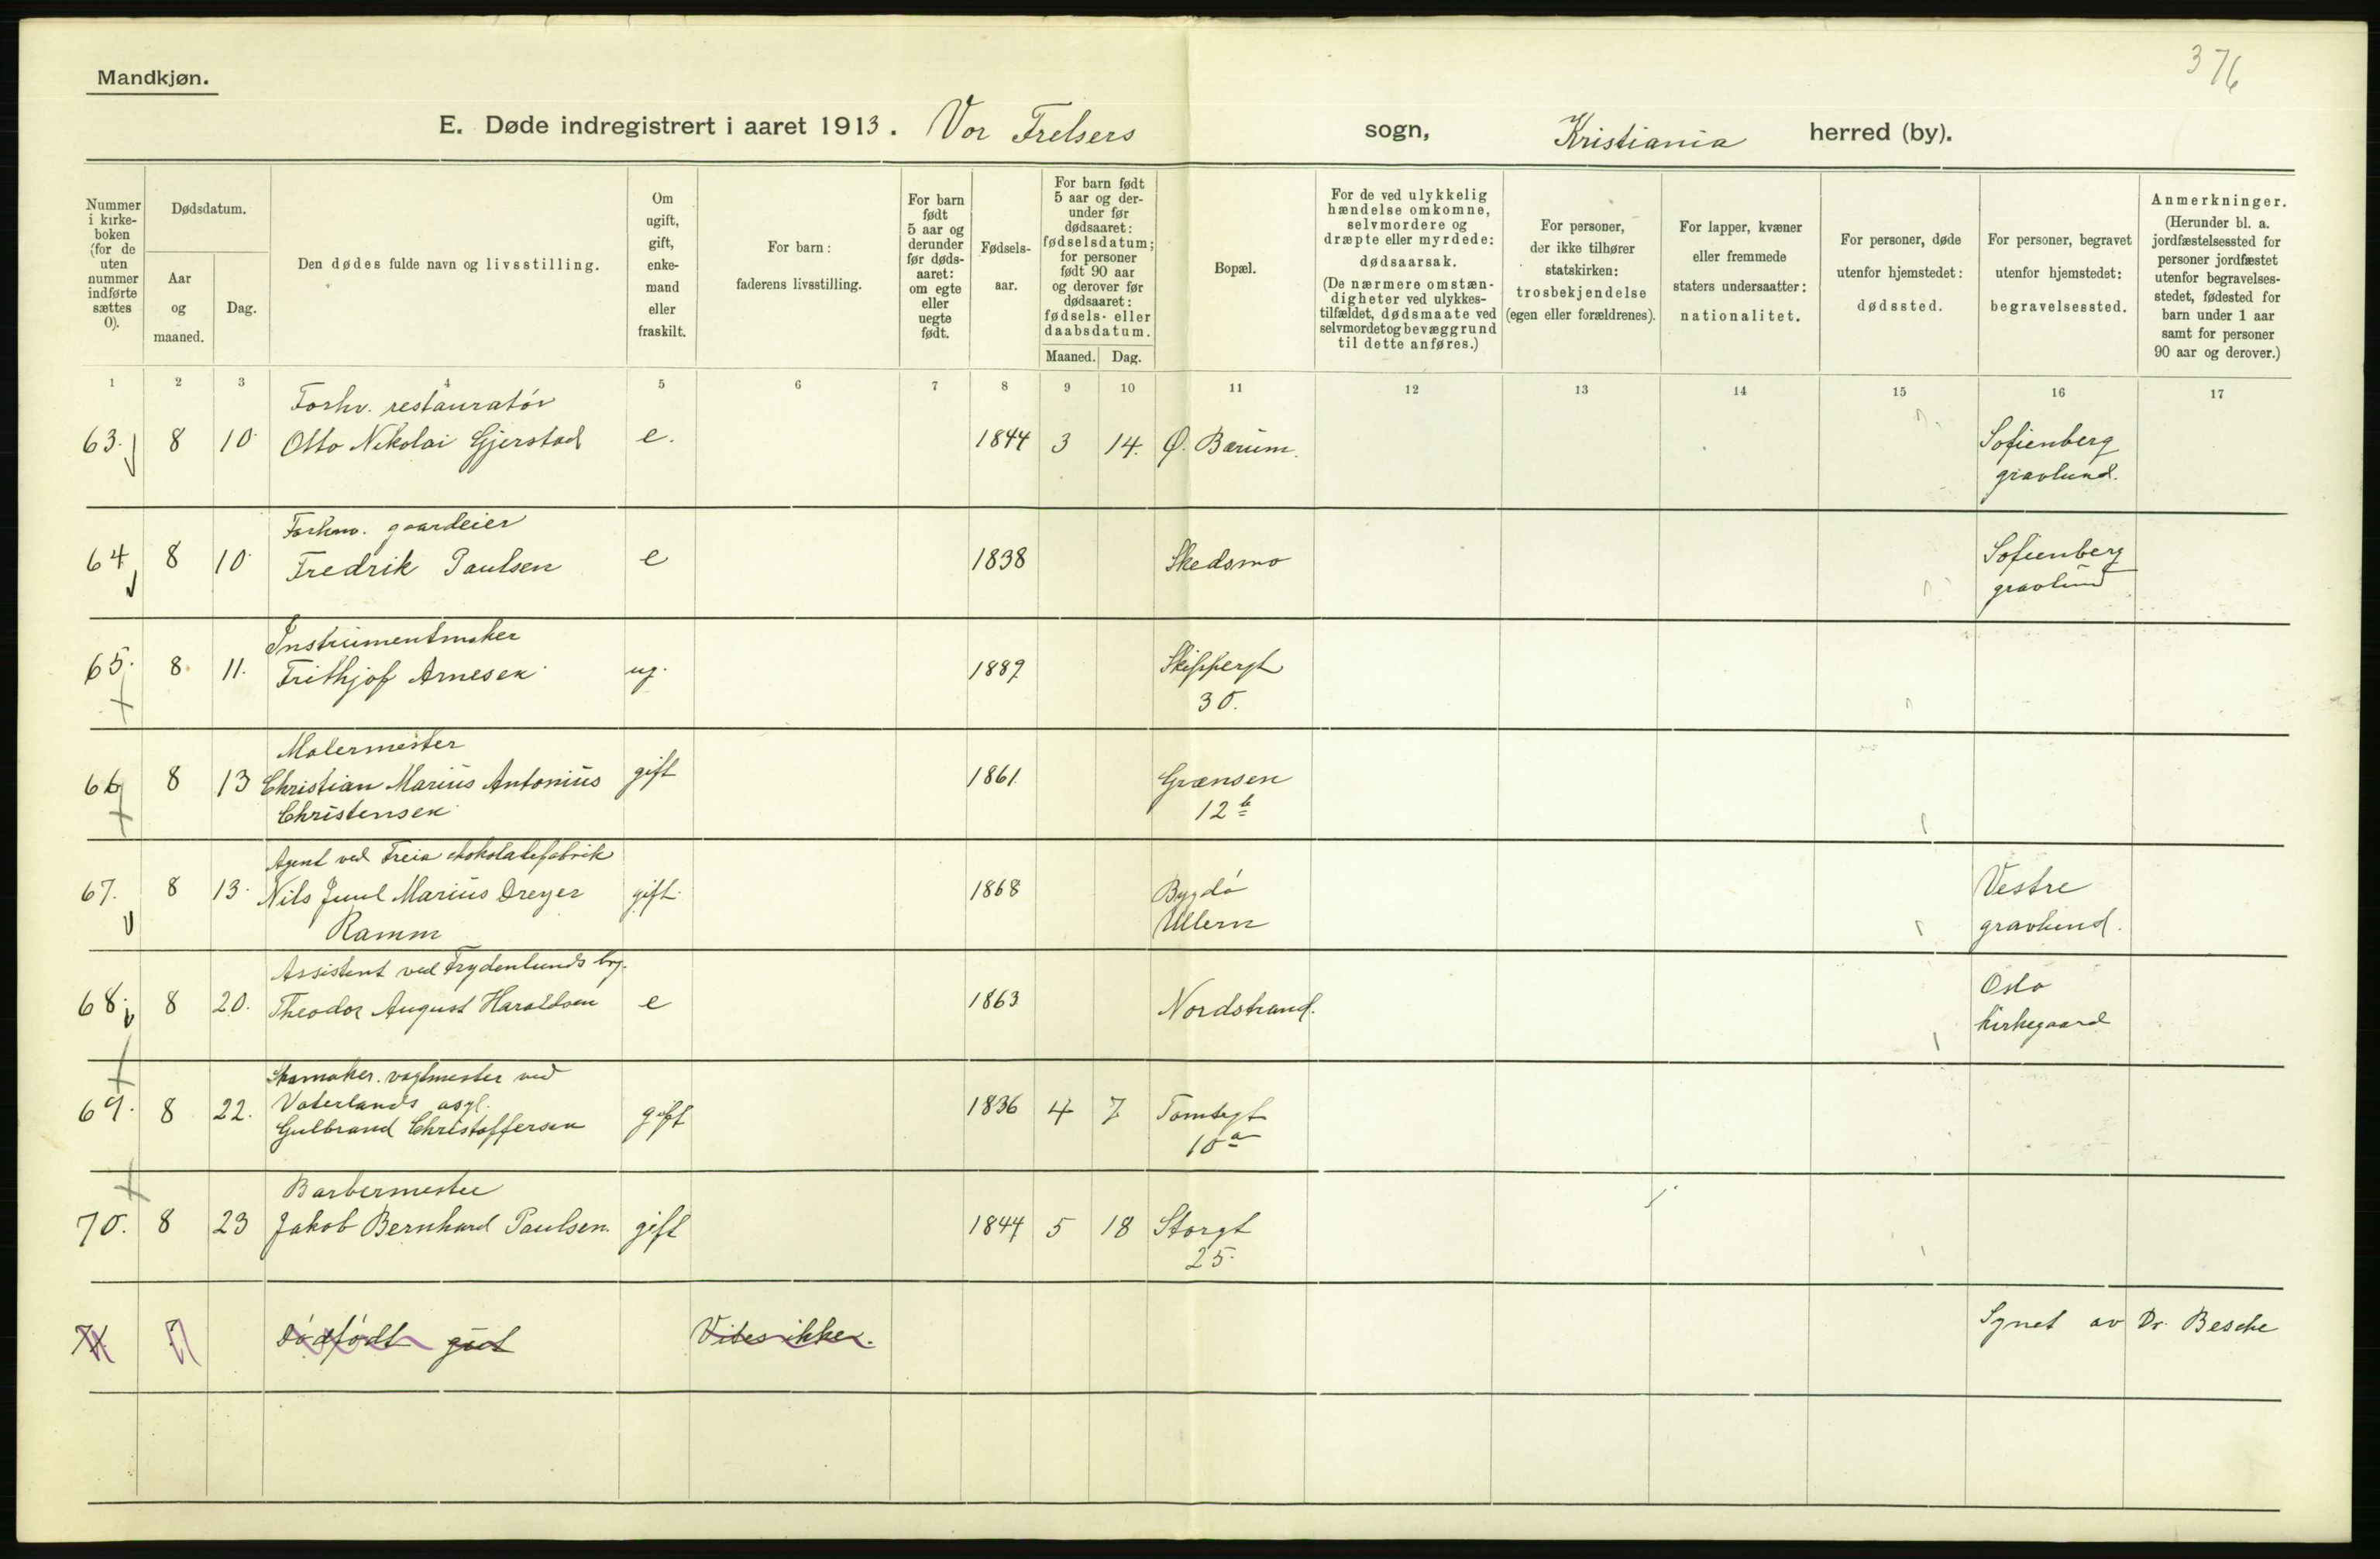 376
Mandkjøn.
E. Døde indregistrert i aaret 1913. Vor Frelsers sogn, Kristiania herred (by).
Nummer i kirke-boken (for de uten nummer indførte sættes 0).
Dødsdatum.
Aar og maaned.
Dag.
Den dødes fulde navn og livsstilling.
Om ugift, gift, enke-mand eller fraskilt.
For barn: faderens livsstilling.
For barn født 5 aar og derunder før døds-aaret: om egte eller uegte født.
Fødsels-aar.
For barn født 5 aar og der-under før dødsaaret: fødselsdatum; for personer født 90 aar og derover før dødsaaret: fødsels- eller daabsdatum.
Maaned. Dag.
Bopæl.
For de ved ulykkelig hændelse omkomne, selvmordere og dræpte eller myrdede: dødsaarsak.
(De nærmere omstæn-digheter ved ulykkes-tilfældet, dødsmaate ved selvmordet og bevæggrund til dette anføres.)
For personer, der ikke tilhører statskirken: trosbekjendelse (egen eller forældrenes).
For lapper, kvæner eller fremmede staters undersaatter: nationalitet.
For personer, døde utenfor hjemstedet: dødssted.
For personer, begravet utenfor hjemstedet: begravelsessted.
Anmerkninger.
(Herunder bl. a. jordfæstelsessted for personer jordfæstet utenfor begravelses-stedet, fødested for barn under 1 aar samt for personer 90 aar og derover.)
1 2 3 4 5 6 7 8 9 10 11 12 13 14 15 16 17
Forhv. restauratør
63. 8 10. Otto Nikolai Gjerstad e. 1844 3 14. Ø. Bærum. Sofienberg
gravlund.
Forhv. gaardeier
64 8 10. Fredrik Paulsen e 1838 Skedsmo Sofienberg
gravlund
Instrumentmaker
65. 8. 11. Frithjof Arnesen ug. 1889 Skippergt
30.
Malermester
66 8 13 Christian Marius Antonius gift 1861 Grænsen
Christensen 12 b
Agent ved Freia chokoladefabrik
67. 8 13. Nils Juul Marius Dreyer gift. 1868 Bygdø Vestre
Ramm Ullern gravlund.
Assistent ved Frydenlunds bry.
68. 8 20. Theodor August Haraldsen e 1863 Nordstrand. Oslo
kirkegaard
Skomaker. vagtmester ved
Vaterlands asyl.
69. 8 22. Gulbrand Christoffersen gift 1836 4 7 Tomtegt
10 a
Barbermester
70. 8 23 Jakob Bernhard Paulsen. gift 1844 5 18 Storgt
25.
71 Dødfødt gut Vites ikke. Synet av Dr. Besche